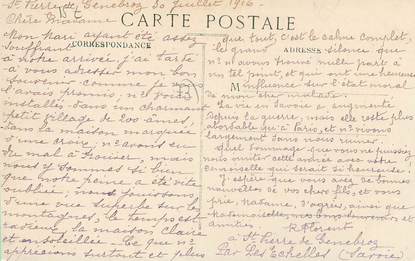 St Pierre de Genebroz 30 Juillet 1916
Chère Madame
CARTE POSTALE
CORRESPONDANCE
ADRESSE
Mon mari ayant été assez
souffrant
à notre arrivée j'ai tardé
à vous adresser mon bon
souvenir comme je vous
l'avais promis.
installés dans un charmant
petit village de 200 âmes,
dans la maison marquée
d'une croix, n/avons eu
du mal à trouver, mais
nous y sommes si bien
que notre peine a été vite
oubliée. nous jouissons
d'une vue superbe sur les
montagnes, le temps est
radieux, la maison claire
et ensoleillée. Ce que n/
apprécions surtout et plus
que tout, c'est le calme complet,
le grand silence que
n/ n'avons trouvé nulle part à
un tel point, et qui a une heureuse
influence sur l'état moral
de mon cher
La vie en Savoie a augmenté
depuis la guerre, mais elle reste plus
abordable qu'à Paris, et n/ vivons
largement sans nous ruiner.
Quel dommage que vous ne puissiez
nous imiter cette année avec votre
qui serait si heureuse!
J'espère que vous avez de bonnes
nouvelles de vos chers fils, et vous
prie, Madame, d'agréer, ainsi que
Mesdemoiselles, nos bons souvenirs et
amitiés
Florent
à St Pierre de Genebroz
Par Les Echelles (Savoie)